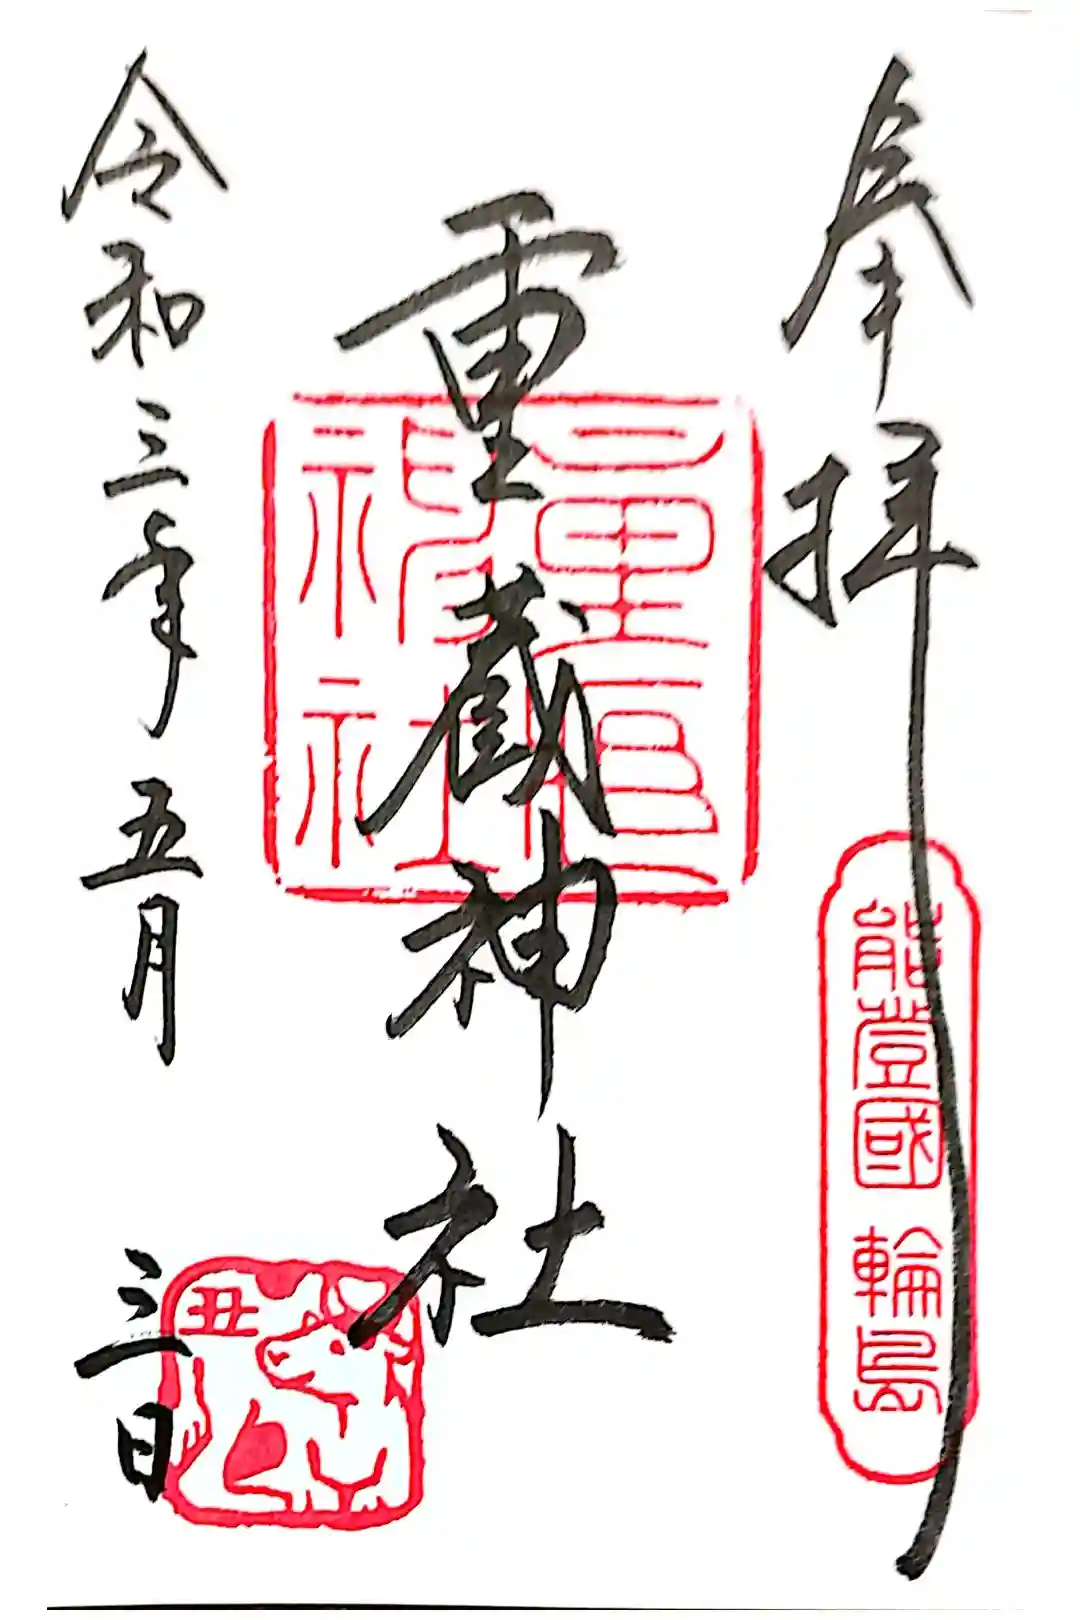 奉拝
能登國 輪島
重蔵神社
重
神社
令和三年五月三日
丑